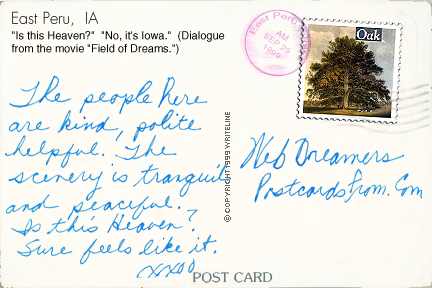 East Peru, IA
"Is this Heaven?" "No, it's Iowa." (Dialogue
from the movie "Field of Dreams.")
The people here
are kind, polite
helpful. The
scenery is tranquil
and peaceful.
Is this Heaven?
Sure feels like it.
xxoo
© COPYRIGHT 1999 WRITELINE
East Peru,
AM
1999
Oak
Web Dreamers
PostcardsFrom.Com
POST CARD